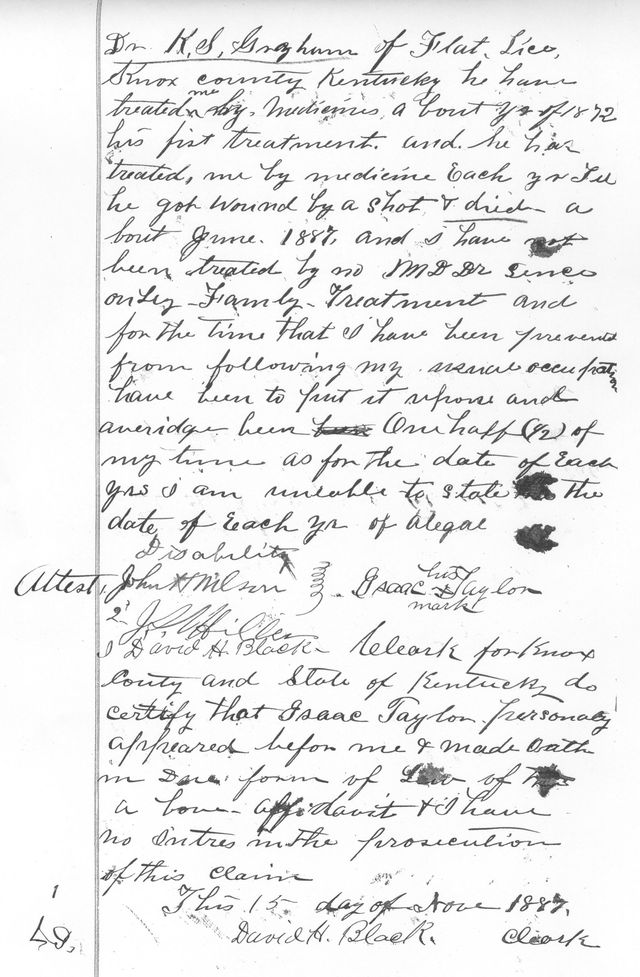 Dr. K. S, Grayham of Flat, Lico,
Knox county Kentucky he have
treated me by. Medicines, a bout yr of 1872
his fist treatment. and. he has
treated, me by medicine Each yr Till
he got wound by a shot & died a
bout June. 1887, and I have not
been treated by no MD Dr Sence
onley - Family - Treatment and
for the time that I have been prevent
from following my usual occupation
have been to put it upone and
averidge been been One half (1/2) of
my time as for the date of Each
yrs I am uneable to state the
date, of Each yr of alegae
Disability
Attest, John H Wilson Isaac his X mark Taylor
2d J. Hiller
I David H. Black - Cleark for Knox
Conty and State of Kentucky do
certify that Isaac Taylor personaly
appeared befor me & made Oath
in Due form of Law of this
a bove affidavit & I have
no Intres in the prosecution
of this claim
This 15 day of Nove 1887,
David H. Black. Cleark